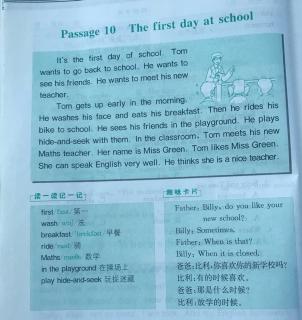 Passage 10 The first day at school
It's the first day of school. Tom
wants to go back to school. He wants to
see his friends. He wants to meet his new
teacher.
Tom gets up early in the morning.
He washes his face and eats his breakfast. Then he rides his
bike to school. He sees his friends in the playground. He plays
hide-and-seek with them. In the classroom, Tom meets his new
Maths teacher. Her name is Miss Green. Tom likes Miss Green.
She can speak English very well. He thinks she is a nice teacher.
读一读记一记
first 第一
wash 洗
breakfast 早餐
ride 骑
Maths 数学
in the playground 在操场上
play hide-and-seek 玩捉迷藏
趣味卡片
Father: Billy, do you like your
new school?
Billy: Sometimes.
Father: When is that?
Billy: When it is closed.
爸爸:比利,你喜欢你的新学校吗?
比利:有的时候喜欢。
爸爸:那是什么时候?
比利:放学的时候。